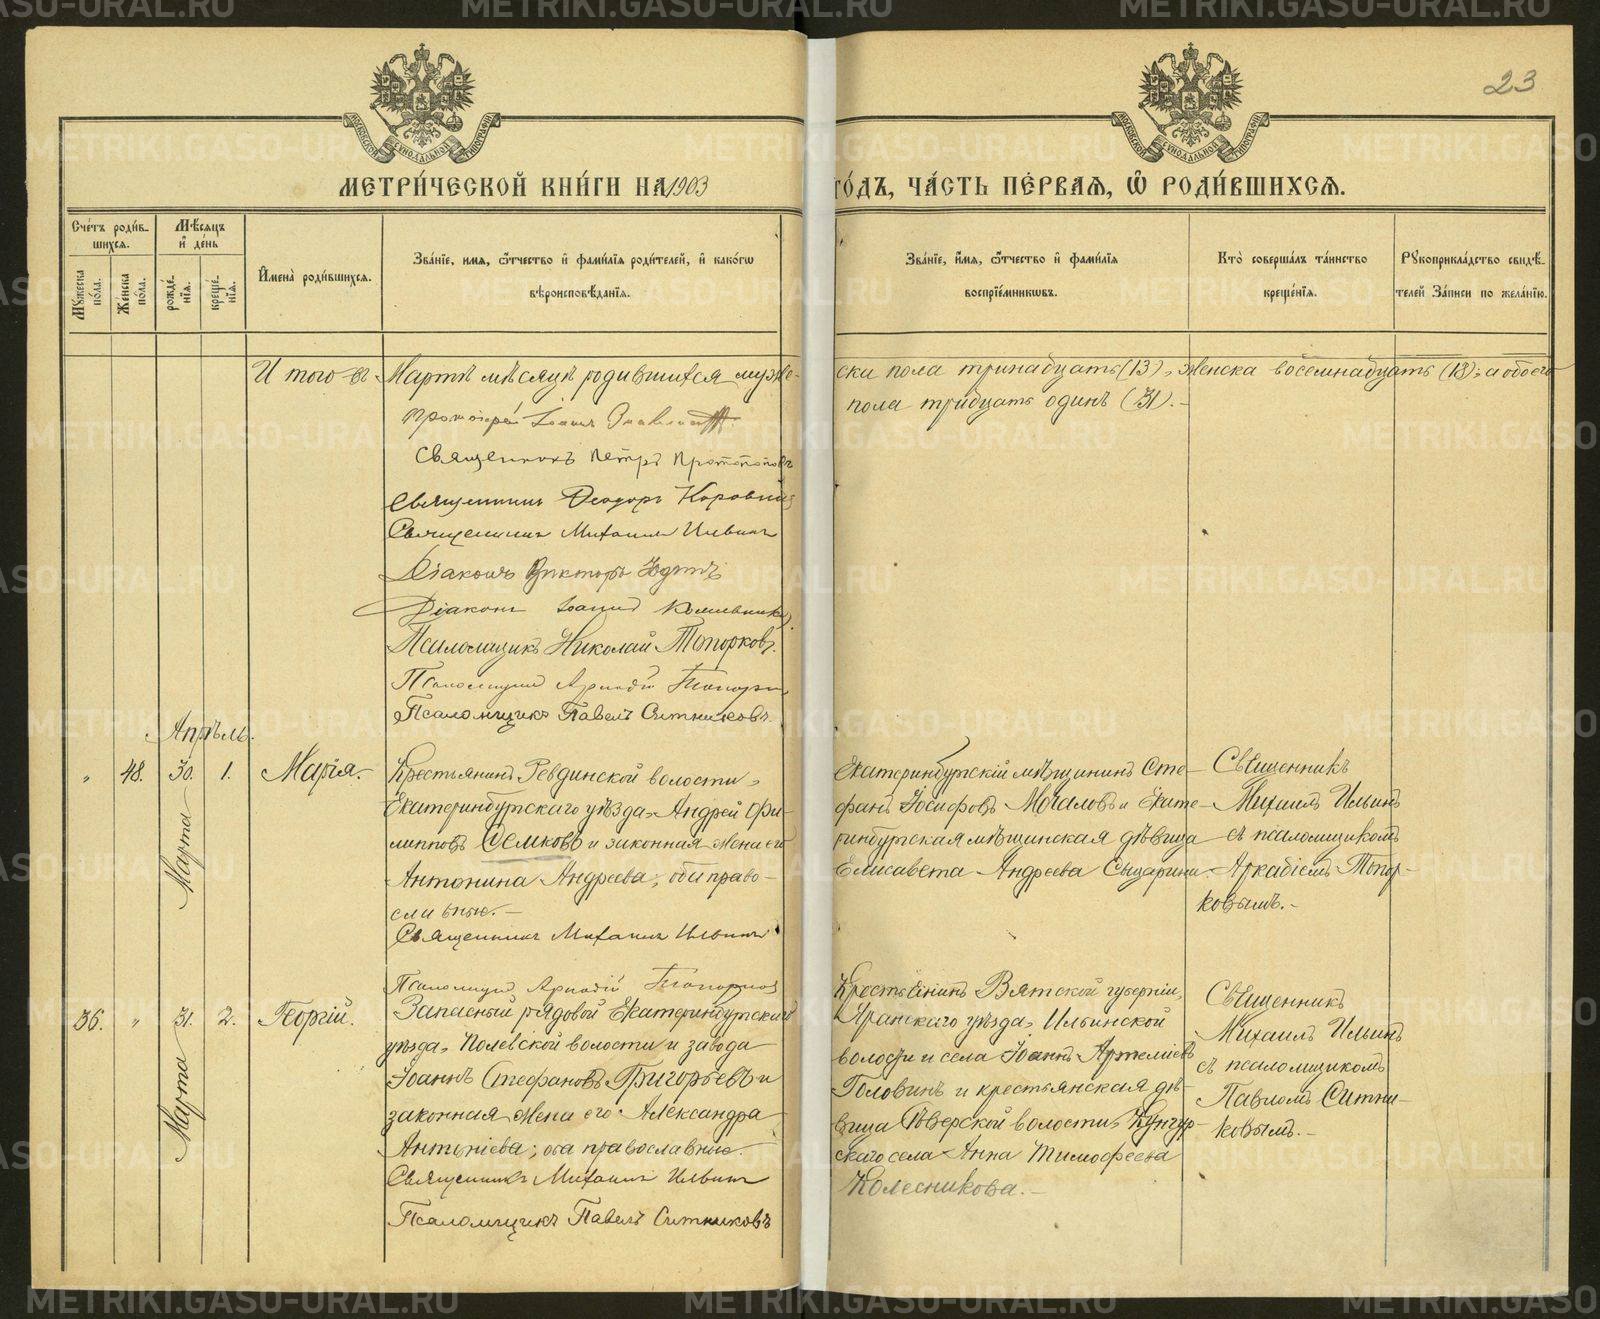 23
МОСКОВСКОЙ СѴНОДАЛЬНОЙ ТИПОГРАФІИ
МОСКОВСКОЙ СѴНОДАЛЬНОЙ ТИПОГРАФІИ
МЕТРИ́ЧЕСКОЙ КНИ́ГИ НА 1903 ГО́ДЪ, ЧА́СТЬ ПЕ́РВАЯ, Ѽ РОДИ́ВШИХСЯ.
Сче́тъ роди́в-
шихся.
Мꙋжеска по́ла.
Же́нска по́ла.
Мѣ́сяцъ
и҆ де́нь
рожде́-
нїя.
креще́-
нїя.
И҆мена̀ роди́вшихся.
Зва́нїе, и҆мя, ѻ҆́тчество и҆ фами́лїя роди́телей, и҆ како́гѡ
вѣроисповѣ́данїя.
Зва́нїе, и҆́мя, ѻ҆́тчество и҆ фами́лїя
воспрїе́мникѡвъ.
Кто̀ соверша́лъ та́инство
креще́нїя.
Рꙋкоприкла́дство свидѣ́-
телей За́писи по жела́нїю.
И того въ Мартѣ мѣсяцѣ родившихся муже-
ска пола тринадцать (13), женска восемнадцать (18); а обоего
пола тридцать одинъ (31).-
Протоіерей Іоаннъ
Священникъ Петръ Протопоповъ
Священникъ Ѳеодоръ Коровинъ
Священникъ Михаилъ Ильинъ
Діаконъ Викторъ Юдинъ
Діаконъ Іоаннъ
Псаломщикъ Николай Топорковъ.
Псаломщикъ Аркадій Топорковъ
Псаломщикъ Павелъ Ситниковъ.
Апрѣль.
„ 48. 30. 1. Марія.-
Марта
Крестьянинъ Ревдинской волости,
Екатеринбургскаго уѣзда, Андрей Фи-
липповъ Семковъ и законная жена его
Антонина Андреева; оби право-
славные.-
Священникъ Михаилъ Ильинъ
Псаломщикъ Аркадій Топорковъ
Екатеринбургскій мѣщанинъ Сте-
фанъ Іосифовъ Мочаловъ и Екате-
ринбургская мѣщанская дѣвица
Елисавета Андреева
Священникъ
Михаилъ Ильинъ
съ псаломщикомъ
Аркадіемъ Топор-
ковымъ.-
36. „ 31. 2. Георгій.
Марта
Запасный рядовой Екатеринбургскаго
уѣзда, Полевской волости и завода
Іоаннъ Стефановъ Григорьевъ и
законная жена его Александра
Антоніева; оба православные.
Священникъ Михаилъ Ильинъ
Псаломщикъ Павелъ Ситниковъ
Крестьянинъ Вятской губерніи,
Яранскаго уѣзда, Ильинской
волости и села Іоаннъ Артеміевъ
Головинъ и крестьянская дѣ-
вица волости, Кунгур-
скаго села Анна Тимофеева
Колесникова.-
Священникъ
Михаилъ Ильинъ
съ псаломщикомъ
Павломъ Ситни-
ковымъ.-
METRIKI.GASO-URAL.RU